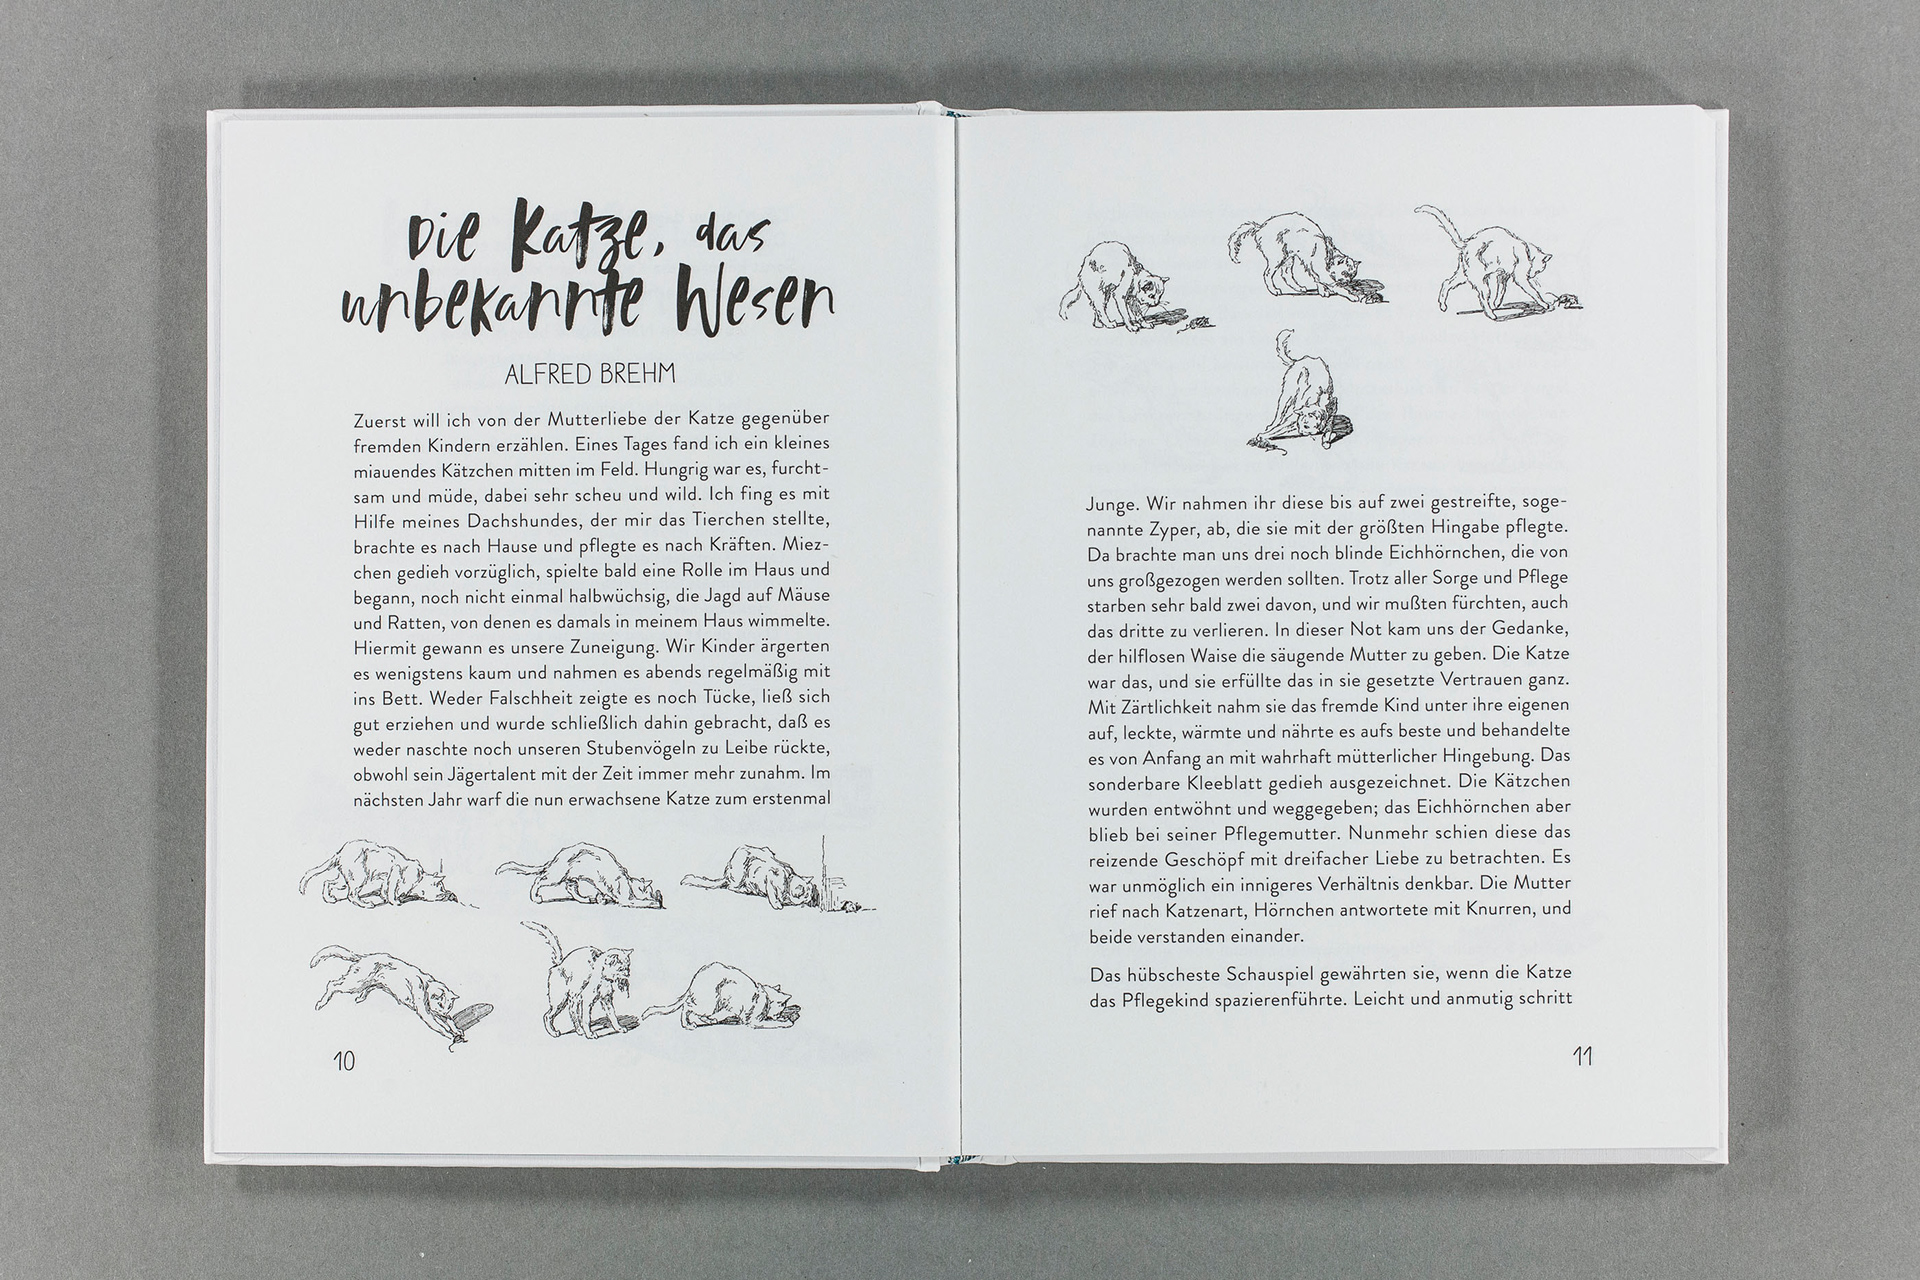 Die Katze, das
unbekannte Wesen
ALFRED BREHM
Zuerst will ich von der Mutterliebe der Katze gegenüber
fremden Kindern erzählen. Eines Tages fand ich ein kleines
miauendes Kätzchen mitten im Feld. Hungrig war es, furcht-
sam und müde, dabei sehr scheu und wild. Ich fing es mit
Hilfe meines Dachshundes, der mir das Tierchen stellte,
brachte es nach Hause und pflegte es nach Kräften. Miez-
chen gedieh vorzüglich, spielte bald eine Rolle im Haus und
begann, noch nicht einmal halbwüchsig, die Jagd auf Mäuse
und Ratten, von denen es damals in meinem Haus wimmelte.
Hiermit gewann es unsere Zuneigung. Wir Kinder ärgerten
es wenigstens kaum und nahmen es abends regelmäßig mit
ins Bett. Weder Falschheit zeigte es noch Tücke, ließ sich
gut erziehen und wurde schließlich dahin gebracht, daß es
weder naschte noch unseren Stubenvögeln zu Leibe rückte,
obwohl sein Jägertalent mit der Zeit immer mehr zunahm. Im
nächsten Jahr warf die nun erwachsene Katze zum erstenmal
10
Junge. Wir nahmen ihr diese bis auf zwei gestreifte, soge-
nannte Zyper, ab, die sie mit der größten Hingabe pflegte.
Da brachte man uns drei noch blinde Eichhörnchen, die von
uns großgezogen werden sollten. Trotz aller Sorge und Pflege
starben sehr bald zwei davon, und wir mußten fürchten, auch
das dritte zu verlieren. In dieser Not kam uns der Gedanke,
der hilflosen Waise die säugende Mutter zu geben. Die Katze
war das, und sie erfüllte das in sie gesetzte Vertrauen ganz.
Mit Zärtlichkeit nahm sie das fremde Kind unter ihre eigenen
auf, leckte, wärmte und nährte es aufs beste und behandelte
es von Anfang an mit wahrhaft mütterlicher Hingebung. Das
sonderbare Kleeblatt gedieh ausgezeichnet. Die Kätzchen
wurden entwöhnt und weggegeben; das Eichhörnchen aber
blieb bei seiner Pflegemutter. Nunmehr schien diese das
reizende Geschöpf mit dreifacher Liebe zu betrachten. Es
war unmöglich ein innigeres Verhältnis denkbar. Die Mutter
rief nach Katzenart, Hörnchen antwortete mit Knurren, und
beide verstanden einander.
Das hübscheste Schauspiel gewährten sie, wenn die Katze
das Pflegekind spazierenführte. Leicht und anmutig schritt
11